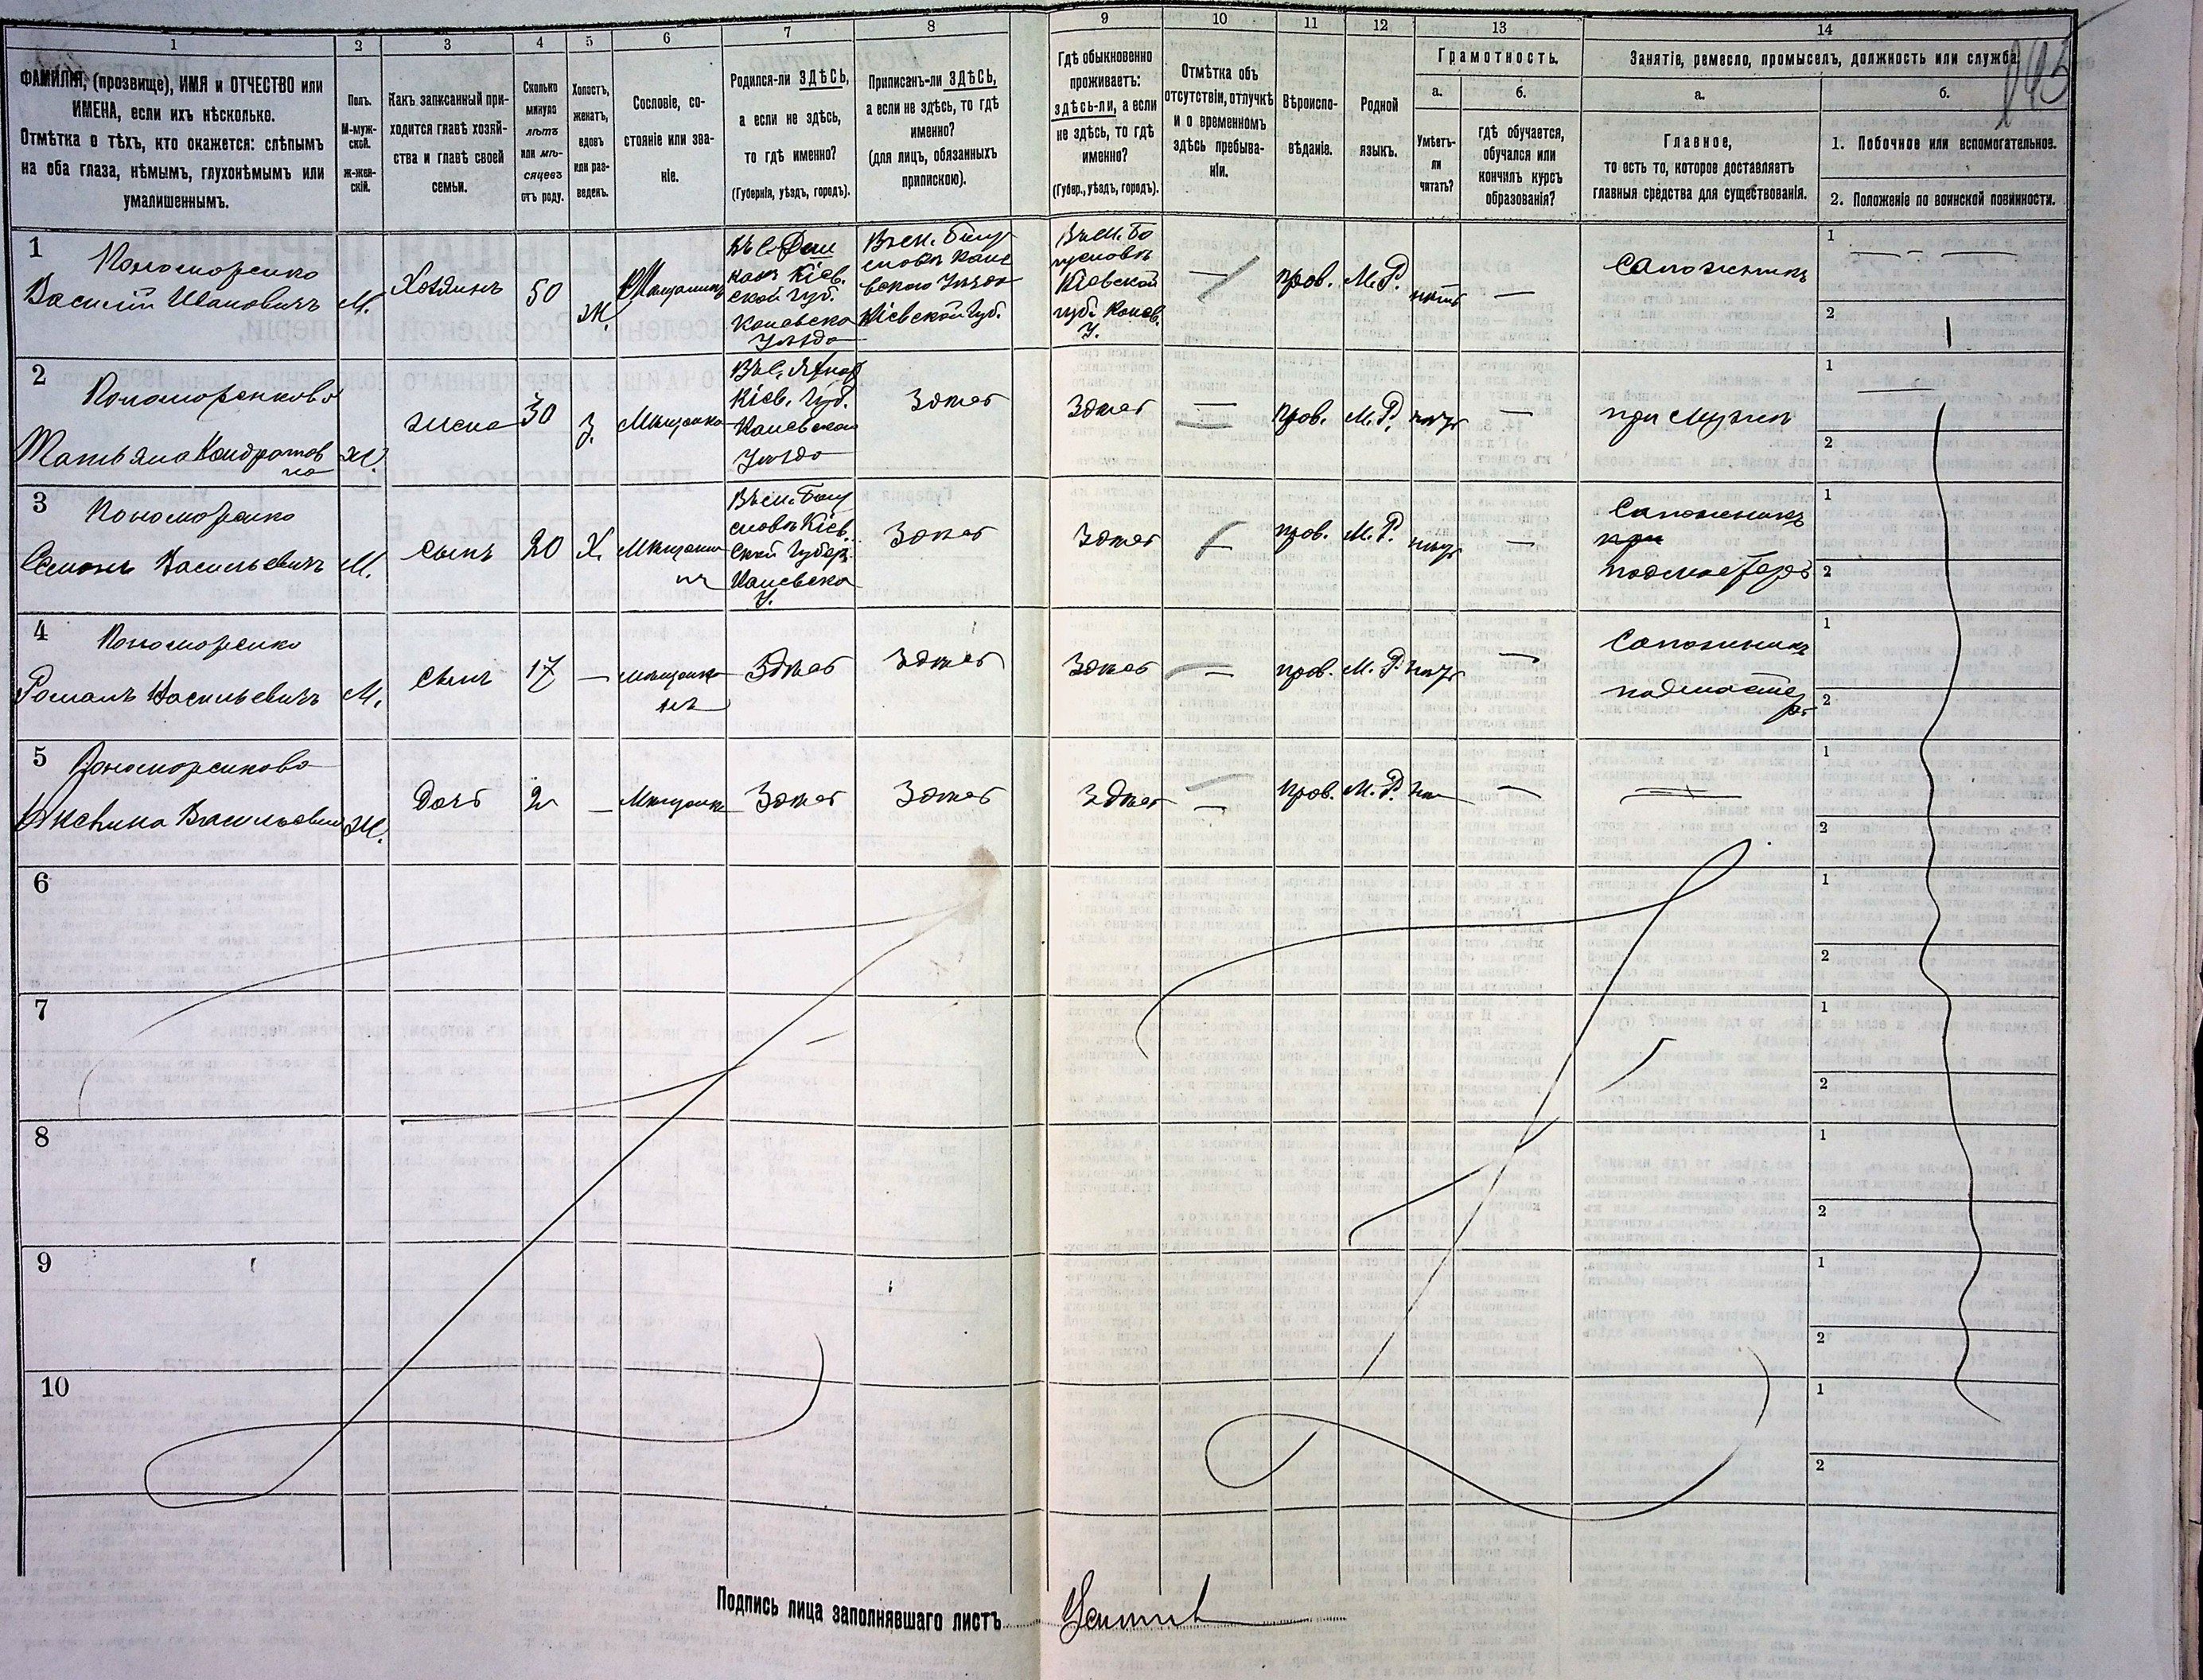 1
2
3
4
5
6
7
8
9
10
11
12
13
14
ФАМИЛІЯ, (прозвище), ИМЯ и ОТЧЕСТВО или
ИМЕНА, если ихъ нѣсколько.
Отмѣтка о тѣхъ, кто окажется: слѣпымъ
на оба глаза, нѣмымъ, глухонѣмымъ или
умалишеннымъ.
Полъ.
М-муж-
ской.
ж-жен-
скій.
Какъ записанный при-
ходится главѣ хозяй-
ства и главѣ своей
семьи.
Сколько
минуло
лѣтъ
или мѣ-
сяцевъ
отъ роду.
Холостъ,
женатъ,
вдовъ
или раз-
веденъ.
Сословіе, со-
стояніе или зва-
ніе.
Родился-ли ЗДѢСЬ,
а если не здѣсь,
то гдѣ именно?
(Губернія, уѣздъ, городъ).
Приписанъ-ли ЗДѢСЬ,
а если не здѣсь, то гдѣ
именно?
(для лицъ, обязанныхъ
припискою).
Гдѣ обыкновенно
проживаетъ:
здѣсь-ли, а если
не здѣсь, то гдѣ
именно?
(Губер., уѣздъ, городъ).
Отмѣтка объ
отсутствіи, отлучкѣ
и о временномъ
здѣсь пребыва-
ніи.
Вѣроиспо-
вѣданіе.
Родной
языкъ.
Грамотность.
а.
Умѣетъ-
ли
читать?
б.
гдѣ обучается,
обучался или
кончилъ курсъ
образованія?
Занятіе, ремесло, промыселъ, должность или служба
а.
Главное,
то есть то, которое доставляетъ
главныя средства для существованія.
б.
1. Побочное или вспомогательное.
2. Положеніе по воинской повинности.
1
Пономаренко
Василій Ивановичъ
М.
Хозяинъ
50
Ж.
Мѣщанинъ
Кіев.
ской губ.
Каневско
Уѣзда
Въ м. Богу
славѣ Кане
вскаго Уѣзда
Кіевской Губ.
Въ м. Бо
гуславѣ
Кіевской
губ. Канев.
У.
—
прав.
М.Р.
нѣтъ
—
Сапожникъ
1
2
2
Пономаренкова
Татьяна Кондратов
на
Ж.
жена
30
З.
Мѣщанка
Кіев. Губ.
Каневскаго
Уѣзда
Здѣсь
Здѣсь
—
прав.
М.Р.
нѣтъ
—
при мужѣ
1
2
3
Пономаренко
Семенъ Васильевичъ
М.
сынъ
20
Х.
Мѣщани
нъ
Въ м. Богу
славѣ Кіев.
ской Губер.
Каневско
У.
Здѣсь
Здѣсь
прав.
М.Р.
нѣтъ
—
Сапожникъ
при
подмастерь
1
2
4
Пономаренко
Романъ Васильевичъ
М.
сынъ
17
—
мѣщани
нъ
Здѣсь
Здѣсь
Здѣсь
—
прав.
М.Р.
нѣтъ
—
Сапожникъ
подмасте
рь
1
2
5
Пономаренкова
Васильевна
Ж.
Дочь
2
—
Мѣщанка
Здѣсь
Здѣсь
Здѣсь
—
прав.
М.Р.
—
1
2
6
1
2
7
1
2
8
1
2
9
1
2
10
1
2
Подпись лица заполнявшаго листъ